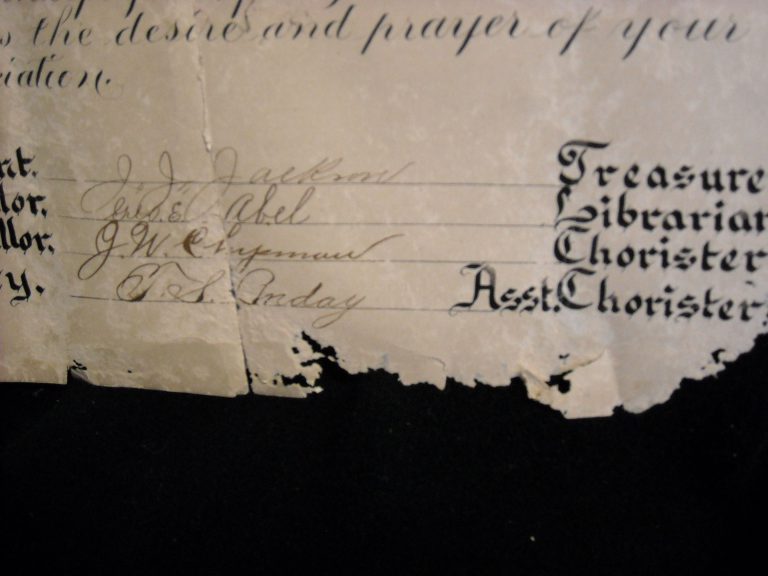 s the desire and prayer of your
ciation.
nt. J. J. Jackson Treasure
lor. Fred E Abel Librarian
llor. J. W. Chapman Chorister
y. T. S. Asst. Chorister.